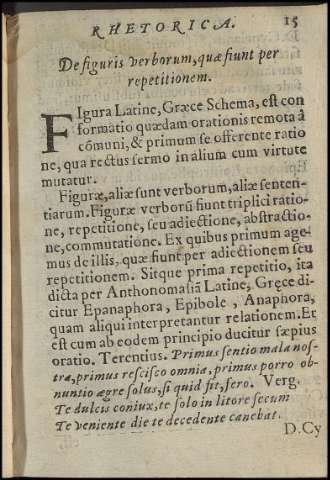 RHETORICA. 15
De figuris verborum, quæ fiunt per
repetitionem.
FIgura Latine, Græce Schema, est con
formatio quædam orationis remota à
cōmuni, & primum se offerente ratio
ne, qua rectus sermo in alium cum virtute
mutatur.
Figuræ, aliæ sunt verborum, aliæ senten-
tiarum. Figuræ verborū fiunt triplici ratio-
ne, repetitione, seu adiectione, abstractio-
ne, commutatione. Ex quibus primum age-
mus de illis, quæ fiunt per adiectionem seu
repetitionem. Sitque prima repetitio, ita
dicta per Anthonomasiā Latine, Gręce di-
citur Epanaphora, Epibole, Anaphora,
quam aliqui interpretantur relationem. Et
est cum ab eodem principio ducitur sæpius
oratio. Terentius. Primus sentio mala nos-
tra, primus rescisco omnia, primus porro ob-
nuntio ægre solus, si quid fit, fero. Verg.
Te dulcis coniux, te solo in litore secum
Te veniente die te decedente canebat.
D.Cy